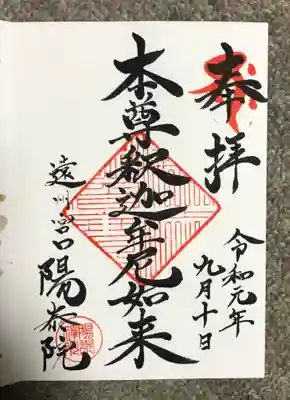 奉拝
令和元年
九月十日
本尊釈迦牟尼如来
遠州宮口
陽泰院